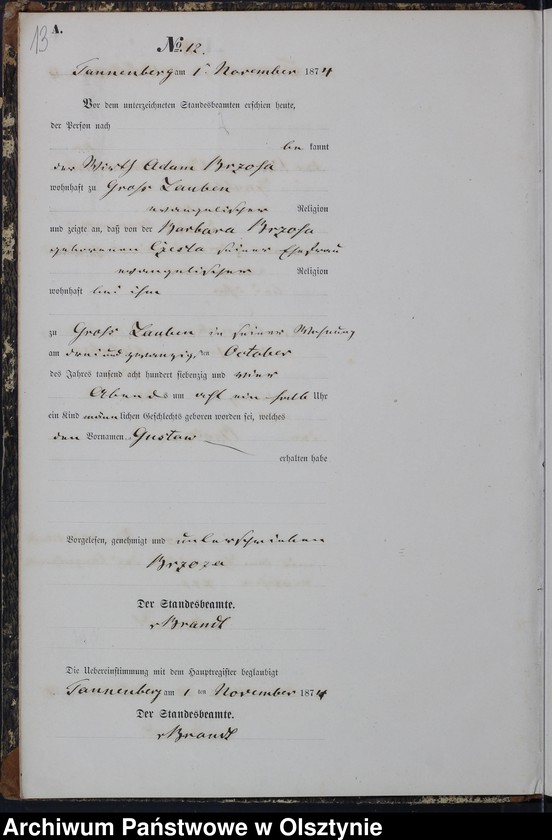 13
A.
No. 12.
Tannenberg am 1ten November 1874
Vor dem unterzeichneten Standesbeamten erschien heute,
der Person nach
be kannt
der Wirth Adam Brzosa
wohnhaft zu Gross Lauben
evangelischer Religion
und zeigte an, daß von der Barbara Brzosa
geborenen Czesla seiner Ehefrau
evangelischer Religion
wohnhaft bei ihm
zu Gross Lauben in seiner Wohnung
am drei und zwanzig ten October
des Jahres tausend acht hundert siebenzig und vier
Abends um acht ein halb Uhr
ein Kind männlichen Geschlechts geboren worden sei, welches
den Vornamen Gustaw
erhalten habe
Vorgelesen, genehmigt und unterschrieben
Brzoza
Der Standesbeamte.
v Brandt
Die Uebereinstimmung mit dem Hauptregister beglaubigt
Tannenberg am 1 ten November 1874
Der Standesbeamte.
v Brandt
Archiwum Państwowe w Olsztynie